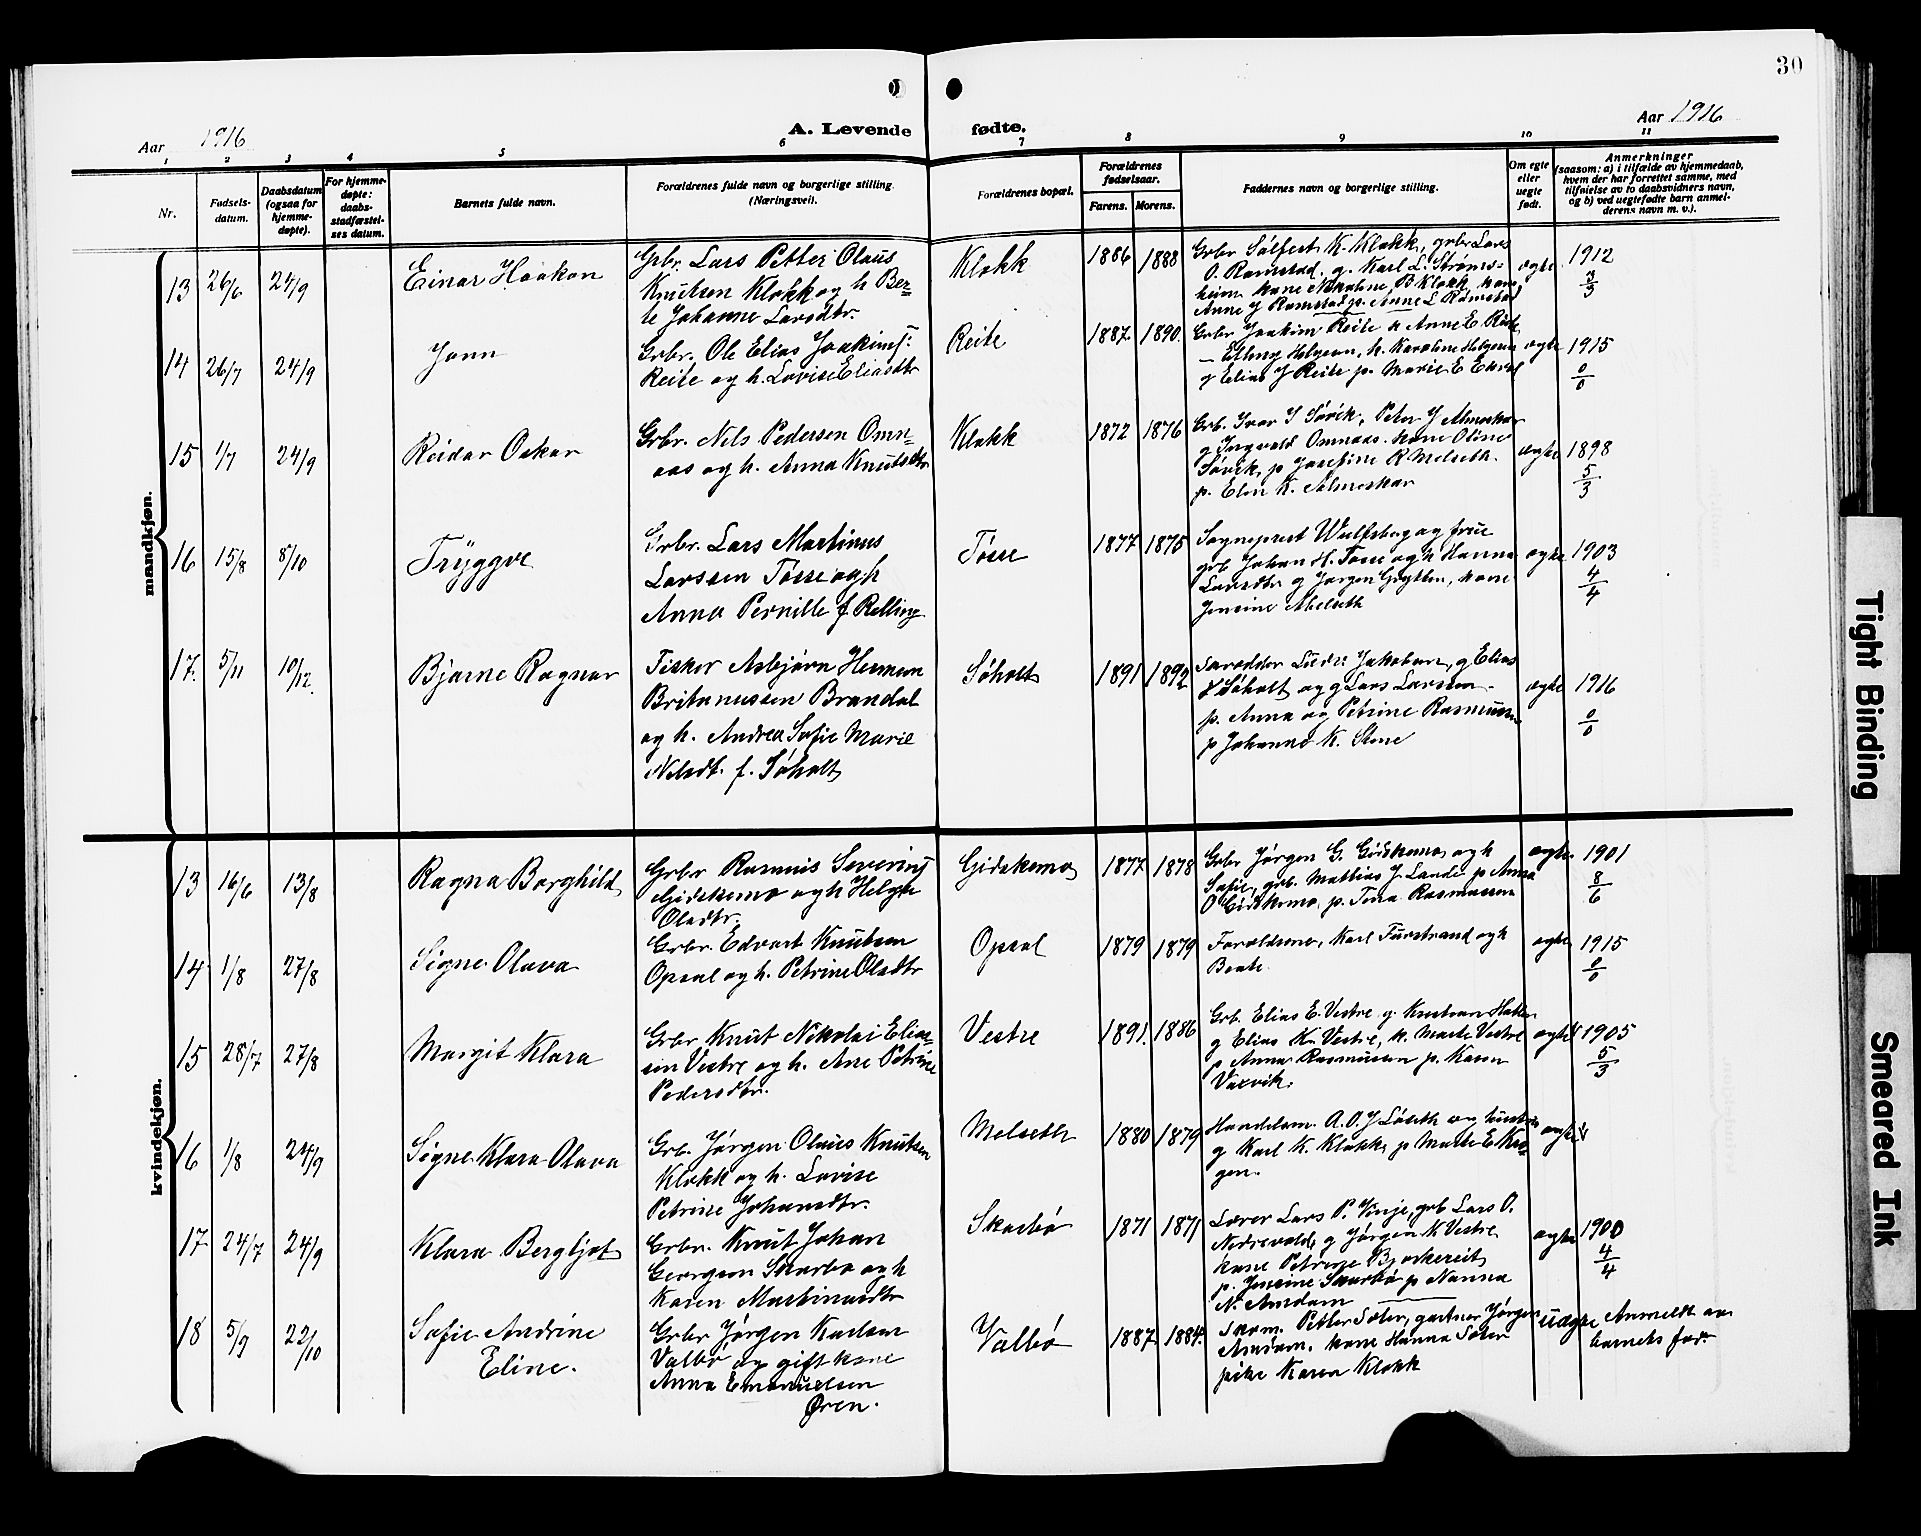 30
Aar 1916
A. Levende fødte.
Aar 1916
1 2 3 4 5 6 7 8 9 10 11
Nr.
Fødsels-
datum.
Daabsdatum
(ogsaa for
hjemme-
døpte).
For hjemme-
døpte:
daabs-
stadfæstel-
ses datum.
Barnets fulde navn.
Forældrenes fulde navn og borgerlige stilling.
(Næringsvei).
Forældrenes bopæl.
Forældrenes
fødselsaar.
Farens. Morens.
Faddernes navn og borgerlige stilling.
Om egte
eller
uegte
født.
Anmerkninger
(saasom: a) i tilfælde av hjemmedaab,
hvem der har forrettet samme, med
tilføielse av to daabsvidners navn,
og b) ved uegtefødte barn anmel-
derens navn m. v.).
mandkjøn.
13 26/6 24/9 Einar Haakon
Grbr. Lars Petter Olaus
Knutsen Klokk og h Ber-
te Johanne Larsdtr.
Klokk 1886 1888
Grbr Sølfest K. Klokk, grbr Lars
O. Ramstad, g. Karl L. Strøms-
heim kone Nikoline, B Klokk, kone
Anne J Ramstad p. Anne L Ramstad
ægte 1912
3
14 26/7 24/9 Jonn
Grbr. Ole Elias Joakims:
Reite og h. Lovise Eliasdtr
Reite 1887. 1890.
Grbr Joakim Reite k Anne E. Reite
Helgesen, k. Karoline Helgesen
g Elias J Reite p. Marie E
ægte 1915
0/0
15 1/7 24/9 Reidar Oskar
Grbr. Nils Pedersen Omn-
aas og h. Anna Knutsdtr
Klokk 1872 1876
Grb. Ivar S Søvik, Peter J Almeskar
g Ingvald Omnaas. kone Oline
Søvik, p Josefine R Melseth.
p. Elen K. Almeskar
ægte 1898
5/3
16 15/8 8/10 Tryggve
Grbr. Lars Martinus
Larssen Tøsse og h
Anna Pernille f Relling
Tøsse 1877 1875
Sogneprest Wulfsberg og frue
grb Johan H. Tøsse og h Hanna
Larsdtr g Jørgen, kone
Jensine Melseth
ægte 1903
4/4
17. 5/11 10/12. Bjarne Ragnar
Fisker Asbjørn Herman
Britanussen Brandal
og h. Andrea Sofie Marie
Nilsdt. f. Søholt
Søholt 1891 1892
Jakobsen, g Elias
Søholt og g Lars Larssen
p. Anna og Petrine Rasmussen
p Johanne K. Stene
ægte 1916
0/0
kvindekjøn.
13 16/6 13/8 Ragna Borghild
Grbr Rasmus Severins
Gidskemo og h Helga
Olsdtr.
Gidskemo 1877 1878
Grbr Jørgen G. Gidskemo og h
Sofie, grb. Mathias J. Lande p Anna
O Gidskemo, p. Tora Rasmussen
ægte 1901
8/6
14 1/8 27/8 Signe Olava
Grbr. Edvart Knutsen
Opsal og h. Petrine Olsdtr
Opsal 1879 1879
Forældrene, Karl Furstrand og h
Beate.
ægte 1915
0/0
15 28/7 27/8 Margit Klara
Grbr Knut Nikolai Elias-
sen Vestre og h. Ane Petrine
Pedersdtr.
Vestre 1891. 1886
Grb. Elias E. Vestre g. Knut
g Elias K. Vestre, k. Marte Vestre
p Anna Rasmussen p. Karen
Vaxvik.
ægte 1905
5/3
16 1/8 24/9 Signe Klara Olava
Grb. Jørgen Olaus Knutsen
Klokk og h. Lovise
Petrine Johansdtr.
Melseth 1880 1879
Handelsm. A.O.J Løseth og hustru
g Karl K. Klokk, p Marte E Kro-
gen.
ægte
17 24/7 24/9 Klara Bergljot
Grbr. Knut Johan
Georgsen Skarbø og h
Karen Martinusdtr
Skarbø 1871 1871
Lærer Lars P. Vinje, grb Lars O.
Nedrevold, g Jørgen K Vestre
kone Petrine Bjørkereit
p. Jensine Skarbø p Nanna
N. Amdam
ægte 1900
4/4
18 5/9 22/10 Sofie Andrine
Eline.
Grbr Jørgen Karlsen
Valbø og gift kone
Anna Emanuelsen
Øren.
Valbø 1887. 1884.
Skom. Petter Soter, gartner Jørgen
Amdam, kone Hanna Soter
pike Karen Klokk
uægte Anmeldt av
barnets far.
Tight Binding
Smeared Ink